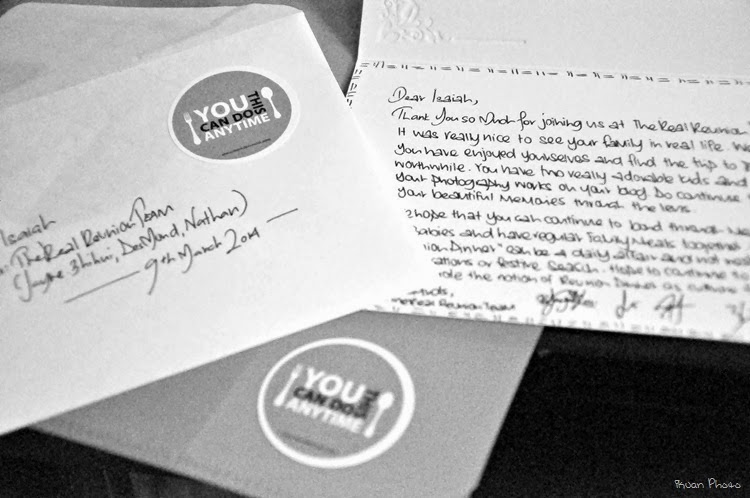 YOU
CAN DO
THIS
ANYTIME
Isaiah
The Real Reunion Team
Zhihui, Desmond, Nathan)
9th March 2014
Dear Isaiah,
Thank You so Much for joining us at The Real Reunion
It was really nice to see your family in real life. We
you have enjoyed yourselves and find the trip to
worthwhile. You have two really adorable kids and
your photography works on your blog. Do continue
your beautiful memories through the lens.
hope that you can continue to bond through
Babies and have regular Family Meals together
Dinner" can be a daily affair and not
or festive season. Hope to continue to
the notion of Reunion Dinner as
Real Reunion Team
YOU
CAN DO
THIS
ANYTIME
Photo